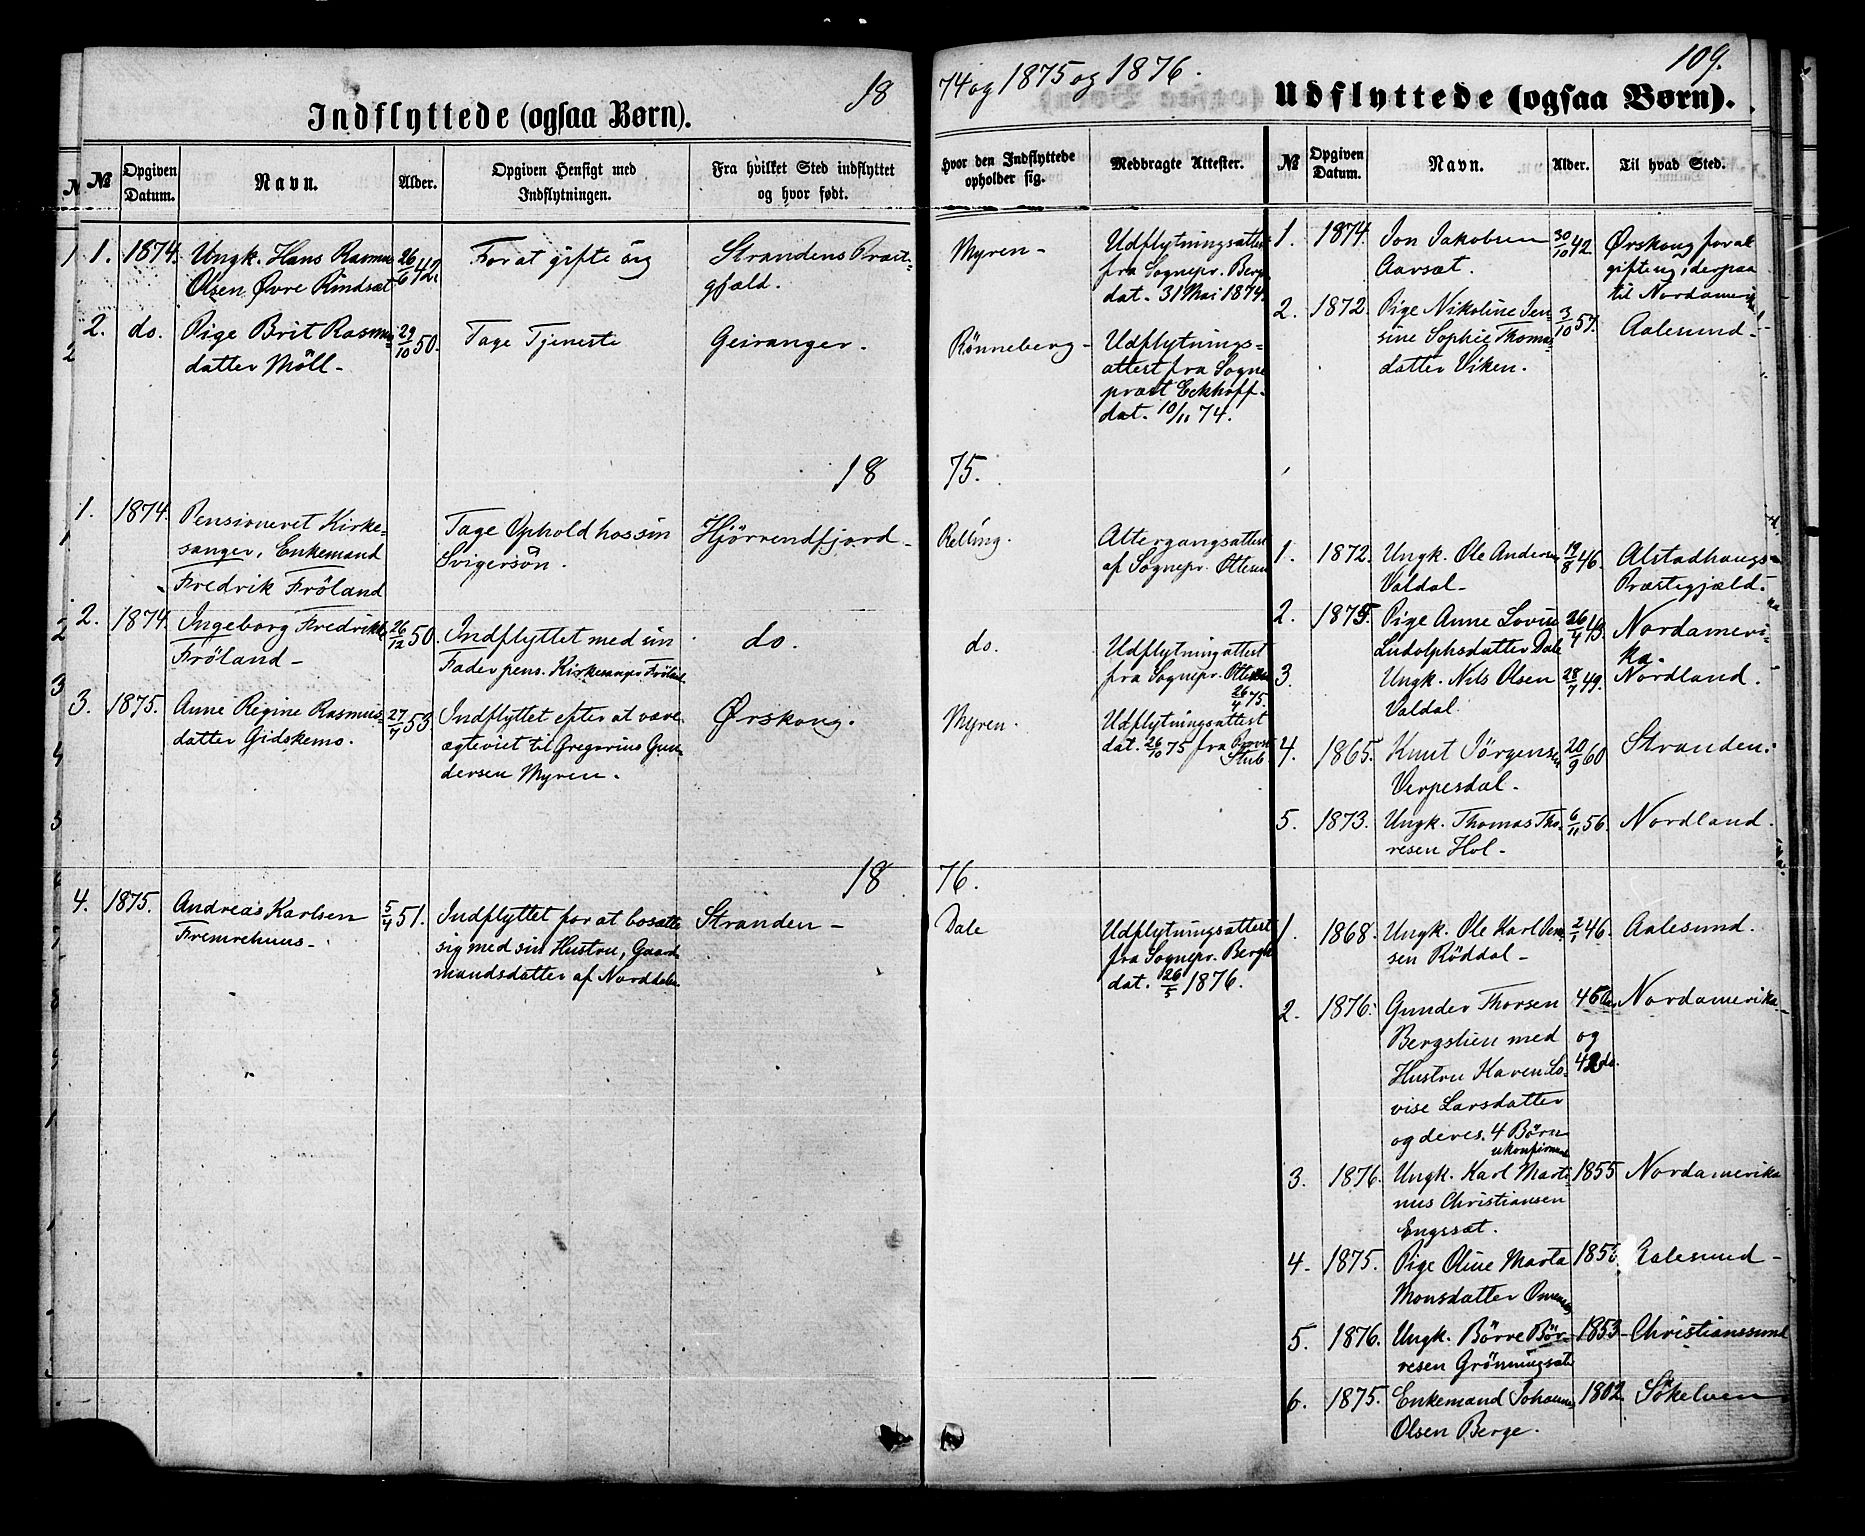 109.
1874 og 1875 og 1876.
Indflyttede (ogsaa Børn).
№
Opgiven Datum.
Navn.
Alder.
Opgiven Hensigt med Indflytningen.
Fra hvilket Sted indflyttet og hvor født.
Hvor den Indflyttede opholder sig.
Medbragte Attester.
1. 1874. Ungk. Hans Rasmus 26/6 42. For at gifte sig Strandens Præste- Myren- Udflytningsattest
Olsen Øvre Rindsæt gjæld. fra Sognepr. Berg
dat. 31 Mai 1874.
2. do. Pige Brit Rasmus 29/10 50. Tage Tjeneste Geiranger. Rønneberg- Udflytnings=
datter Möll- attest fra Sogne
præst Eckhoff
dat. 10/11 74.
1875.
1. 1874. Pensioneret Kirke- Tage Ophold hos sin Hjörrendfjord- Relling. Altergangsattest
sanger, Enkemand Svigersön. af Sognepr. Ottesen
Fredrik Fröland
2. 1874. Ingeborg Fredrikke 26/12 50. Indflyttet med sin do. do. Udflytningattest
Fröland- Fader pens. Kirkesanger Fröland fra Sognepr. Ottesen
26/4 75.
3. 1875. Anne Regine Rasmus- 27/7 53. Indflyttet efter at være Ørskoug. Myren. Udflytningsattest
datter Gidskemo. ægteviet til Gregorius Gun- dat. 26/10 75 fra Provst
dersen Myren. Stub
1876.
4. 1875. Andreas Karlsen 5/4 51. Indflyttet for at bosætte Stranden- Dale Udflytningsattest
Fremrehuus- sig med sin Hustru, Gaard fra Sognepr. Bergh
mandsdatter af Norddalen dat. 26/5 1876.
Udflyttede (ogsaa Børn).
№
Opgiven Datum.
Navn.
Alder.
Til hvad Sted.
1. 1874. Jon Jakobsen 30/10 42. Ørskoug for at
Aarsæt. gifte sig & derpaa
til Nordamerik
2. 1872. Pige Nikoline Jen- 3/10 57. Aalesund-
sine Sophie Thomas
datter Viken.
1. 1872. Ungk. Ole Andersen 19/8 46. Alstadhaugs
Valdal- Præstegjæld.-
2. 1875. Pige Anne Lovise 26/4 49. Nordameri-
Ludolphsdatter Dale ka.
3. Ungk. Nils Olsen 28/7 49. Nordland.
Valdal.
4. 1865. Knut Jörgensen 20/9 60 Stranden.
Verpesdal-
5. 1873. Ungk. Thomas Tho- 6/11 56. Nordland.
resen Hol-
1. 1868. Ungk. Ole Karl Jen- 2/1 46. Aalesund.
sen Röddal-
2. 1876. Gunder Thorsen 45 Nordamerika
Bergslien med og
Hustru Karen Lo- 42 do.
vise Larsdatter
og deres 4 Börn
ukonfirmerede
3. 1876. Ungk. Karl Marti- 1855 Nordamerika
nus Christiansen
Engssæt.
4. 1875. Pige Oline Marta Aalesund-
Monsdatter
5. 1876. Ungk. Börre Bör- 1853- Christianssund
resen Grönningsæter
6. 1875. Enkemand Johannes 1802 Sökelven
Olsen Berge.